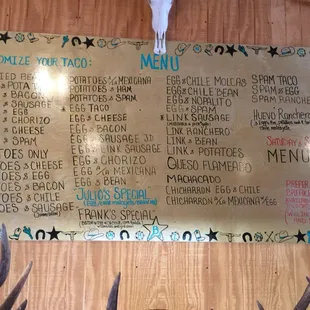 OMIZE YOUR TACO:
MENU
IED BEAN
& POTA
& BACON
& SAUSAGE
& EGG
& CHORIZO
& CHEESE
& SPAM
TOES ONLY
TOES & CHEESE
TOES & EGG
TOES & BACON
TOES & CHILE
TOES & SAUSAGE
POTATOES & HAM
POTATOES & SPAM
EGG TACO
EGG & CHEESE
EGG & BACON
EGG & SAUSAGE
EGG & LINK SAUSAGE
EGG & CHORIZO
EGG A LA MEXICANA
EGG & BEAN
JULIO'S SPECIAL
FRANK'S SPECIAL
EGG & CHILE MOLCAS
EGG & BEANS
EGG & NOPALITO
EGG & SPAM
LINK SAUSAGE
LINK RANCHERO
LINK & BEAN
LINK & POTATOES
QUESO FLAMEADO
MACHACADO
CHICHARRON EGG & CHILE
CHICHARRON A LA MEXICANA & EGG
SPAM TACO
SPAM & EGG
SPAM RANCHE
HUEVO RANCHERO
MENU